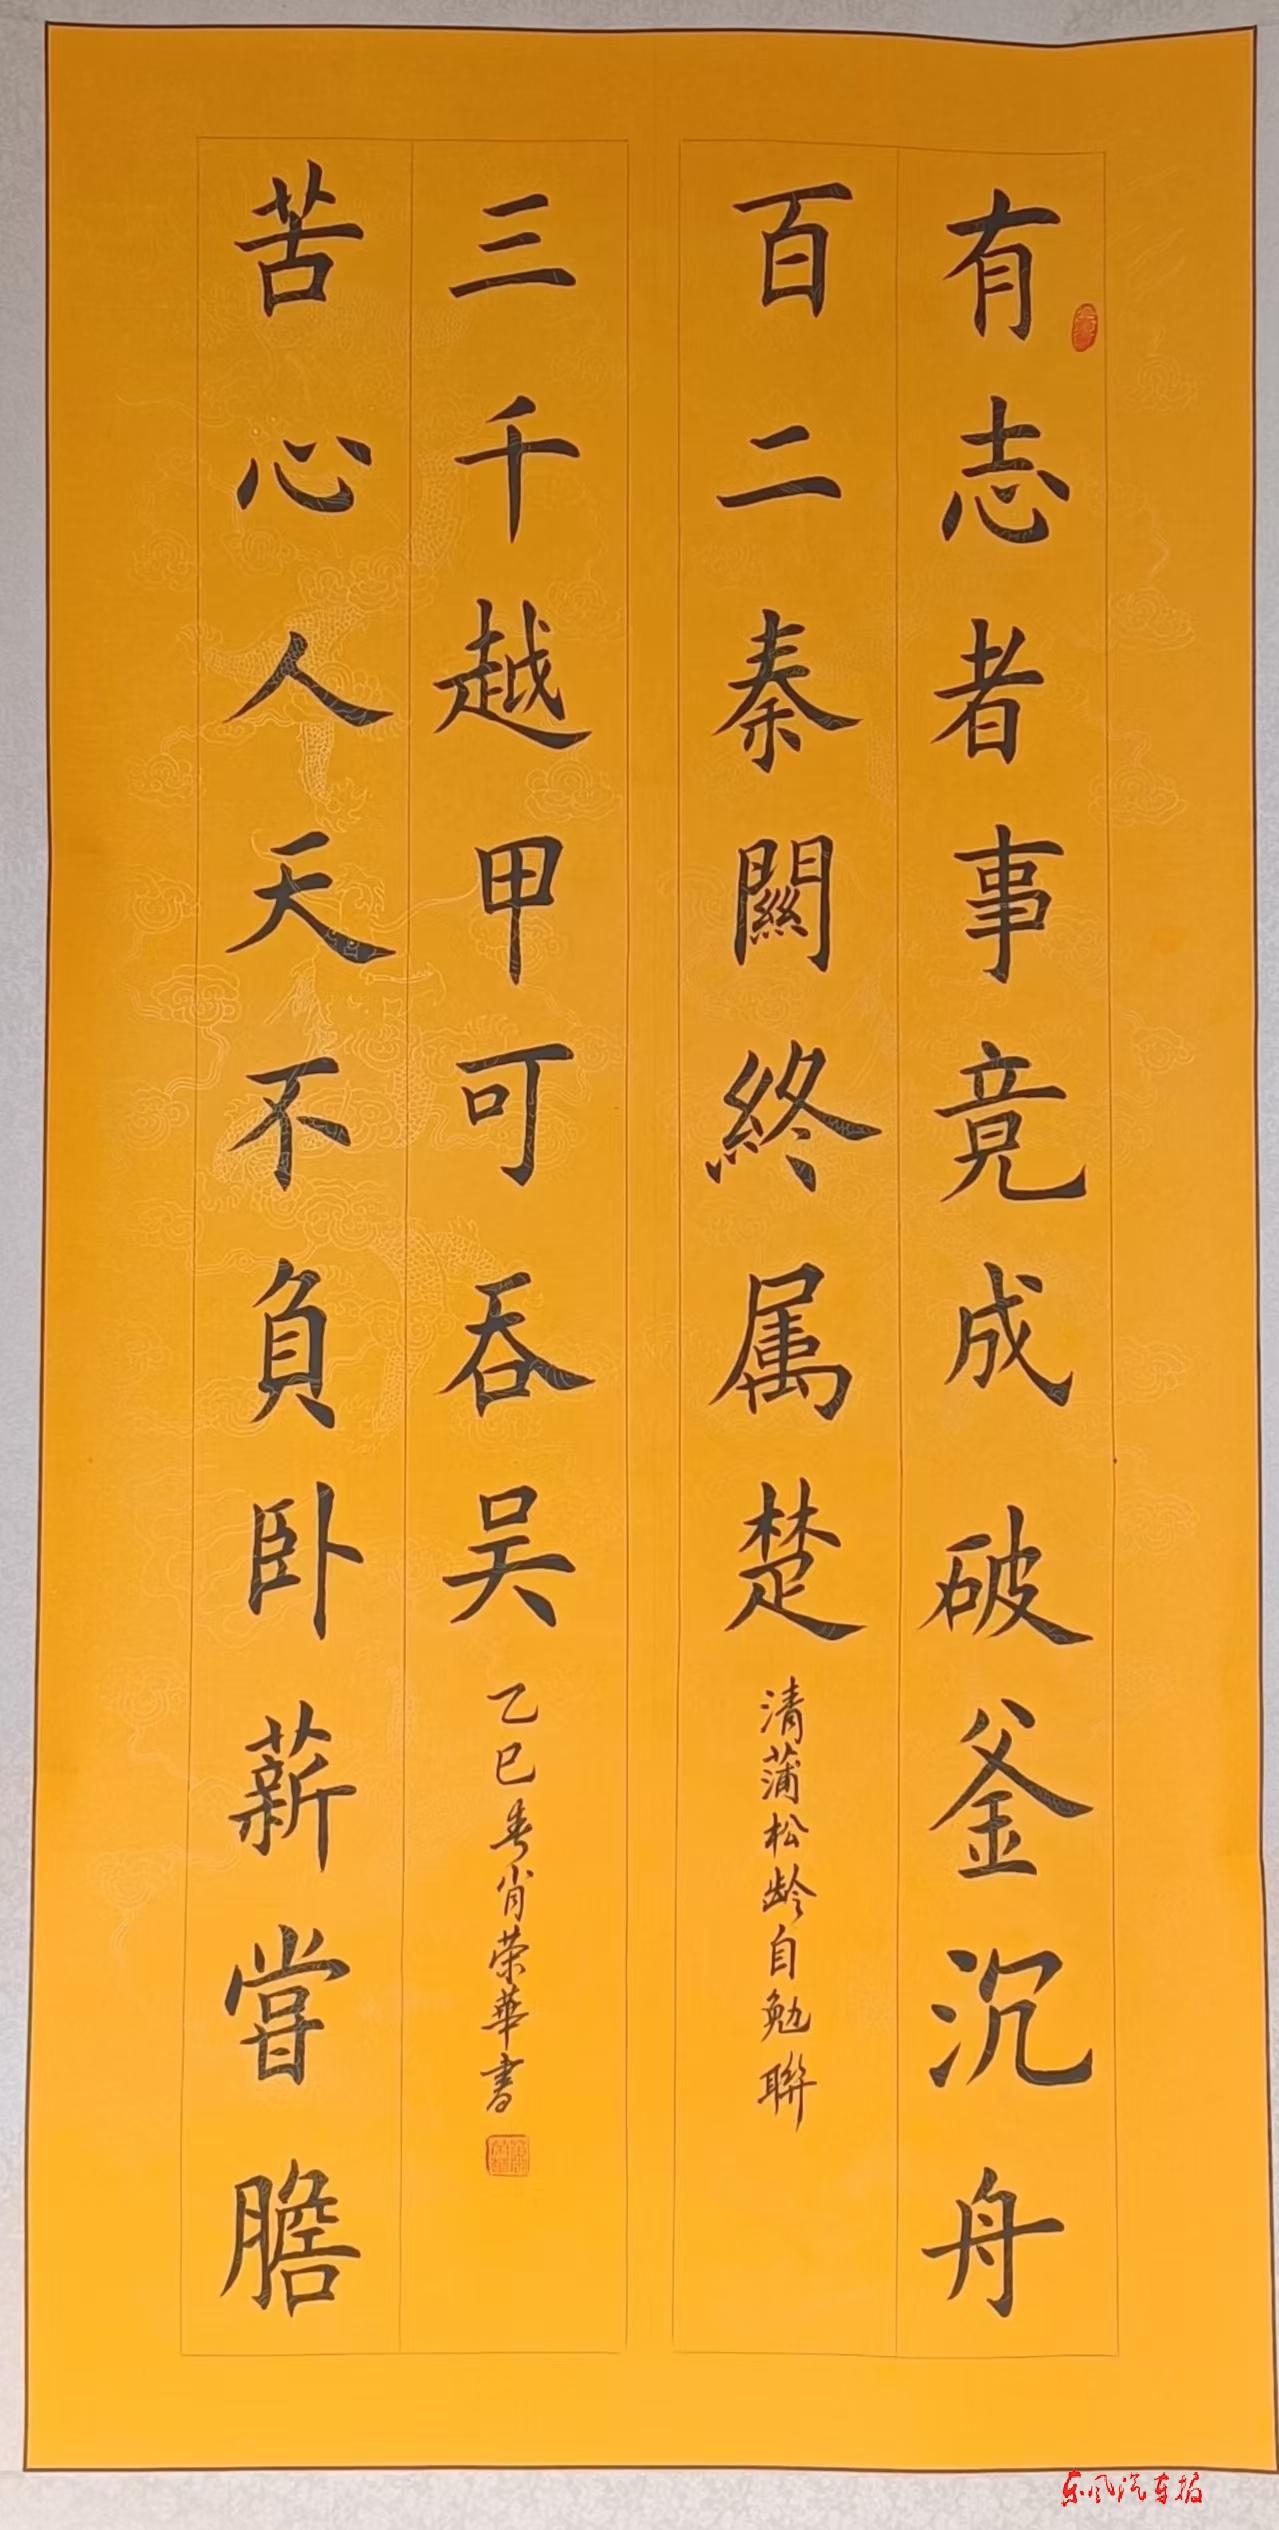 有志者事竟成破釜沉舟
百二秦關終属楚
清蒲松龄自勉聯
苦心人天不負卧薪嘗膽
三千越甲可吞吴
乙巳春肖荣華書
东风汽车报